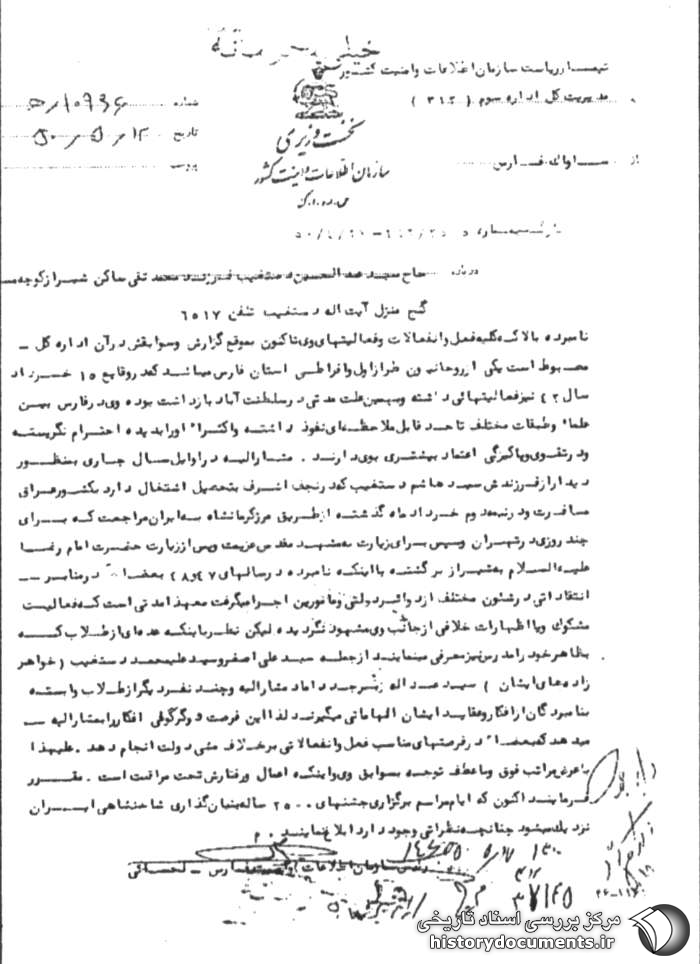 خیلی محرمانه
تیمسار ریاست سازمان اطلاعات و امنیت کشور
مدیریت کل اداره سوم ( ۳۱۲ )
شماره
تاریخ
پیوست
نخست وزیری
سازمان اطلاعات و امنیت کشور
س.ا.و.ا.ک
از ساواک فارس
درباره حاج سید عبدالحسین دستغیب فرزند محمد تقی ساکن شیراز کوچه
گنج منزل آیت اله دستغیب تلفن ۶۵۱۷
نامبرده بالا که کلیه فعل و انفعالات و فعالیتهای وی تاکنون بموقع گزارش و سوابقش در آن اداره کل ـ
مضبوط است یکی از روحانیون طراز اول و افراطی استان فارس میباشد که در وقایع ۱۵ خرداد
سال ۴۲ نیز فعالیتهائی داشته و بهمین علت مدتی در سلطنت آباد بازداشت بوده وی در فارس بین
علماء و طبقات مختلف تا حد قابل ملاحظه‌ای نفوذ داشته و اکثراً او را بدیده احترام نگریسته
و در تقوی و پاکیزگی اعتماد بیشتری بوی دارند . مشارالیه در اوایل سال جاری بمنظور
دیدار از فرزندش سید هاشم دستغیب که در نجف اشرف بتحصیل اشتغال دارد بکشور عراق
مسافرت و در نیمه دوم خرداد ماه گذشته از طریق مرز کرمانشاه به ایران مراجعت که برای
چند روزی در تهران و سپس برای زیارت به مشهد مقدس عزیمت و پس از زیارت حضرت امام رضا
علیه السلام به شیراز برگشته با اینکه نامبرده در سالهای ۴۷ و ۴۸ بعضاً در منابر ــ
انتقاداتی در شئون مختلف از دوائر دولتی و مامورین اجرا میگرفت معهذا مدتی است که فعالیت
مشکوک و یا اظهارات خلافی از جانب وی مشهود نگردیده لیکن نظر باینکه عده‌ای از طلاب که
بظاهر خود را مدرس نیز معرفی مینمایند از جمله سید علی اصغر و سید علیمحمد دستغیب ( خواهر
زاده‌های ایشان ) سید عبداله داماد مشارالیه و چند نفر دیگر از طلاب وابسته
بنامبردگان از افکار و عقاید ایشان الهاماتی میگیرند لذا این فرصت و گرگونی افکار را بمشارالیه ــ
میدهد که بعضاً در فرصتهای مناسب فعل و انفعالاتی برخلاف مشی دولت انجام دهد . علیهذا
با عرض مراتب فوق و با عطف توجه بسوابق وی و اینکه اعمال و رفتارش تحت مراقبت است . مقرر
فرمایند اکنون که ایام مراسم برگزاری جشنهای ۲۵۰۰ ساله بنیان گذاری شاهنشاهی ایران
نزدیک میشود چنانچه نظراتی وجود دارد ابلاغ نمایند . م
رئیس سازمان اطلاعات و امنیت فارس ـ
مرکز بررسی اسناد تاریخی
historydocuments.ir